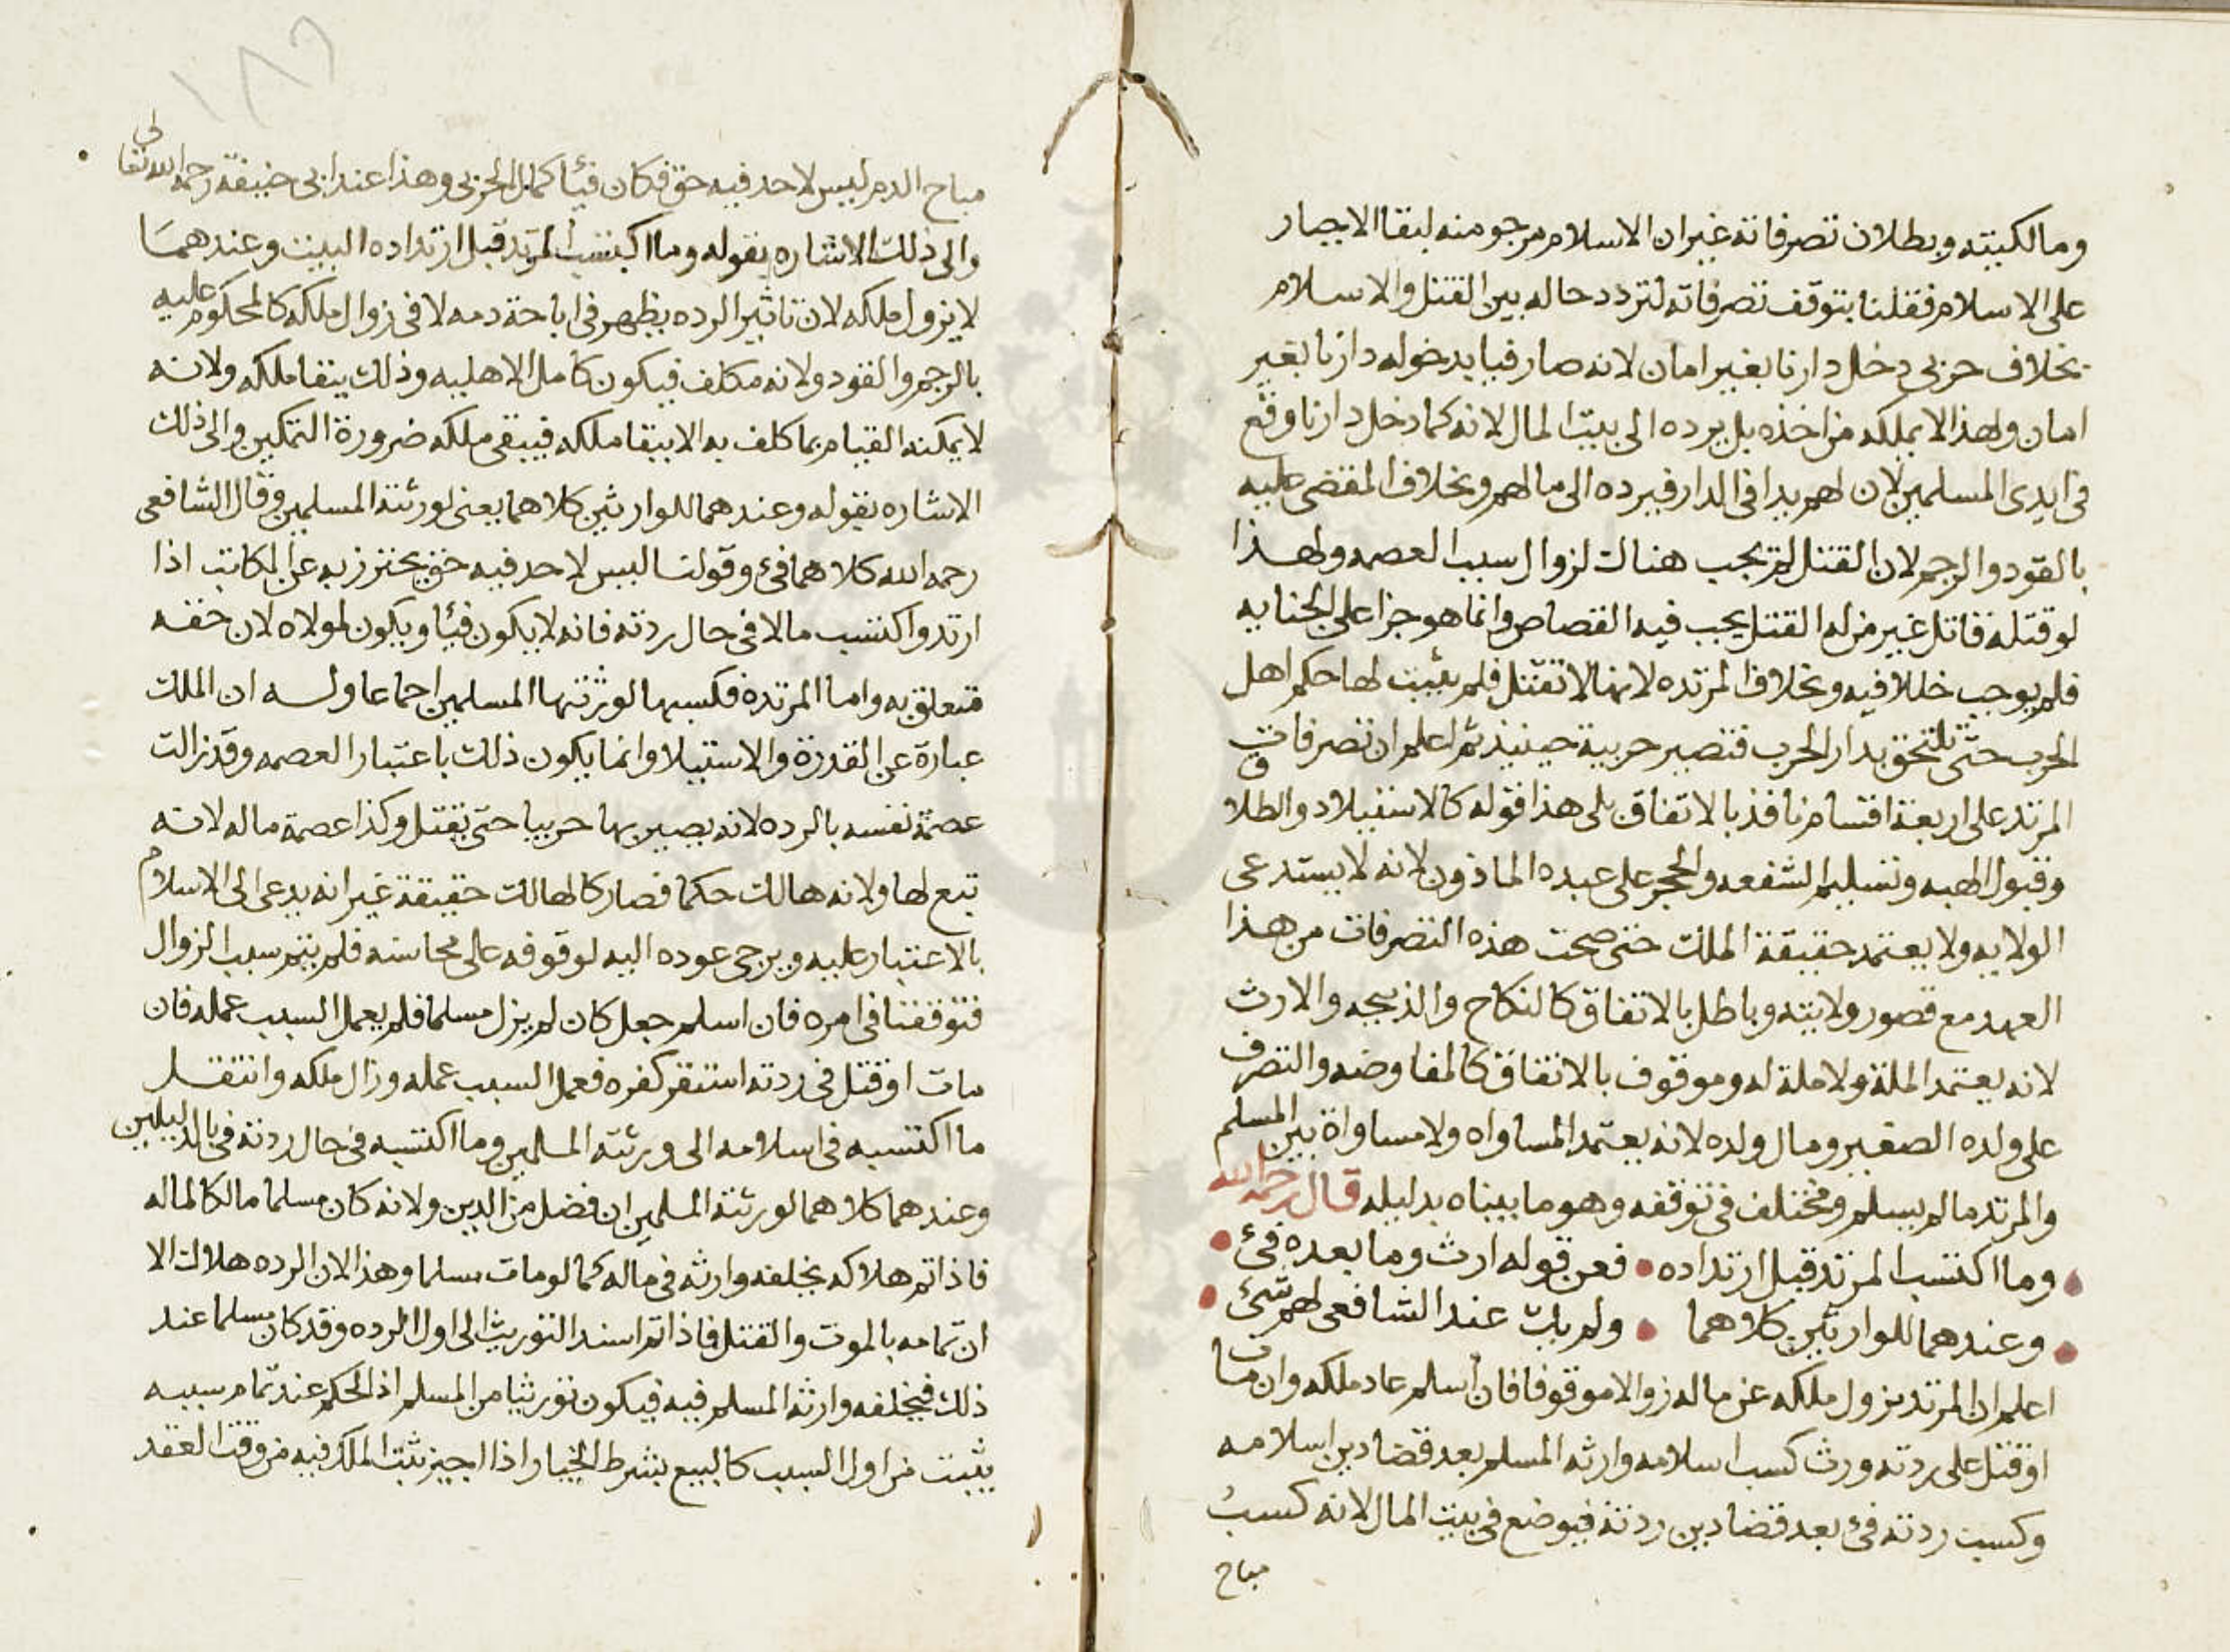 ومالكيته وبطلان تصرفاته غير ان الاسلام مرجو منه لبقا الاجبار
على الاسلام فقلنا بتوقف تصرفاته لتردد حاله بين القتل والاسلام
بخلاف حربي دخل دارنا بغير امان لانه صار فيا بدخوله دارنا بغير
امان ولهذا لا يملكه من اخذه بل يرده الى بيت المال لانه كما دخل دارنا وقع
في ايدى المسلمين لان لهم يدا في الدار فيرده الى مالهم وبخلاف المقضى عليه
بالقود والرجم لان القتل لم يجب هناك لزوال سبب العصمه ولهذا
لو قتله قاتل غير من له القتل يجب فيه القصاص وانما هو جزا على الجنايه
فلم يوجب خللا فيه وبخلاف المرتده لانها لا تقتل فلم يثبت لها حكم اهل
الحرب حتى تلتحق بدار الحرب فتصير حربية حينيذ ثم اعلم ان تصرفات
المرتد على اربعة اقسام نافذ بالاتفاق بلى هذا قوله كالاستيلاد والطلاق
وقبول الهبه وتسليم الشفعه والحجر على عبده الماذون لانه لا يستدعى
الولايه ولا يعتمد حقيقة الملك حتى صحت هذه التصرفات من هذا
العهد مع قصور ولايته وباطل بالاتفاق كالنكاح والذبيحه والارث
لانه يعتمد الملة ولا ملة له وموقوف بالاتفاق كالمفاوضه والتصرف
على ولده الصغير ومال ولده لانه يعتمد المساواه ولا مساواة بين المسلم
والمرتد ما لم يسلم ومختلف في توقفه وهو ما بيناه بدليله قال رحمه الله
وما اكتسب المرتد قبل ارتداده • فعن قوله ارث وما بعده فئ •
وعندهما للوارثين كلاهما • ولم يك عند الشافعى لهم شئ •
اعلم ان المرتد يزول ملكه عن ماله زوالا موقوفا فان اسلم عاد ملكه وان مات
او قتل على ردته ورث كسب اسلامه وارثه المسلم بعد قضا دين اسلامه
وكسب ردته فئ بعد قضا دين ردته فيوضع في بيت المال لانه كسب
مباح
١٨٢
مباح الدم ليس لاحد فيه حق فكان فيئا كمال الحربي وهذا عند ابي حنيفة رحمه الله تعالى
والى ذلك الاشاره بقوله وما اكتسب المرتد قبل ارتداده البيت وعندهما
لا يزول ملكه لان تاثير الرده يظهر في اباحة دمه لا في زوال ملكه كالمحكوم عليه
بالرجم والقود ولانه مكلف فيكون كامل الاهليه وذلك يبقا ملكه ولانه
لا يمكنه القيام بما كلف به الا ببقا ملكه فيبقى ملكه ضرورة التمكين والى ذلك
الاشاره بقوله وعندهما للوارثين كلاهما يعنى لورثته المسلمين وقال الشافعى
رحمه الله كلاهما فئ وقولنا ليس لاحد فيه حق يحترز به عن المكاتب اذا
ارتد واكتسب مالا في حال ردته فانه لا يكون فيئا ويكون لمولاه لان حقه
متعلق به واما المرتدة فكسبها لورثتها المسلمين اجماعا وله ان الملك
عبارة عن القدرة والاستيلا وانما يكون ذلك باعتبار العصمه وقد زالت
عصمة نفسه بالرده لانه يصير بها حربيا حتى يقتل وكذا عصمة ماله لانه
تبع لها ولانه هالك حكما فصار كالهالك حقيقة غير انه يدعى الى الاسلام
بالاعتبار عليه ويرجى عوده اليه لوقوفه على محاسنه فلم يتم سبب الزوال
فتوقفنا في امره فان اسلم جعل كان لم يزل مسلما فلم يعمل السبب عمله فان
مات او قتل في ردته استقر كفره فعمل السبب عمله وزال ملكه وانتقل
ما اكتسبه في اسلامه الى ورثته المسلمين وما اكتسبه في حال ردته في بالدليلين
وعندهما كلاهما لورثته المسلمين ان فضل من الدين ولانه كان مسلما مالكا لماله
فاذا تم هلاكه يخلفه وارثه في ماله كما لو مات مسلما وهذا لان الرده هلاك الا
ان تمامه بالموت والقتل فاذا تم اسند التوريث الى اول الرده وقد كان مسلما عند
ذلك فيخلفه وارثه المسلم فيه فيكون توريثا من المسلم اذ الحكم عند تمام سببه
يثبت من اول السبب كالبيع بشرط الخيار اذا اجيز ثبت الملك فيه من وقت العقد